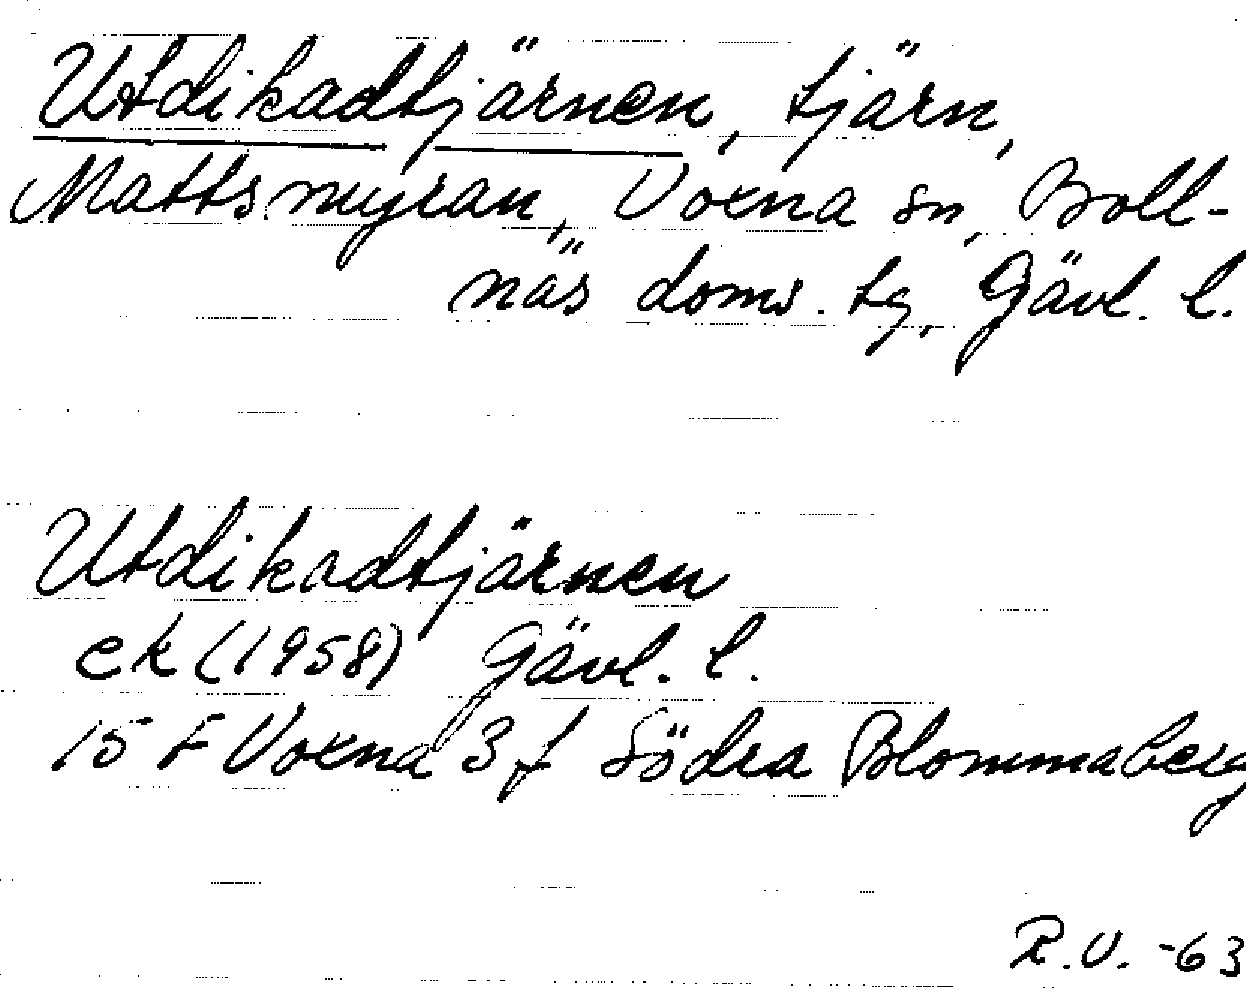 Utdikadtjärnen, tjärn,
Mattsmyran, Voxna sn, Boll-
näs doms. tg, Gävl. l.
Utdikadtjärnen
ek (1958) Gävl. l.
15 F Voxna 3 f Södra Blommaberg
R.V. -63